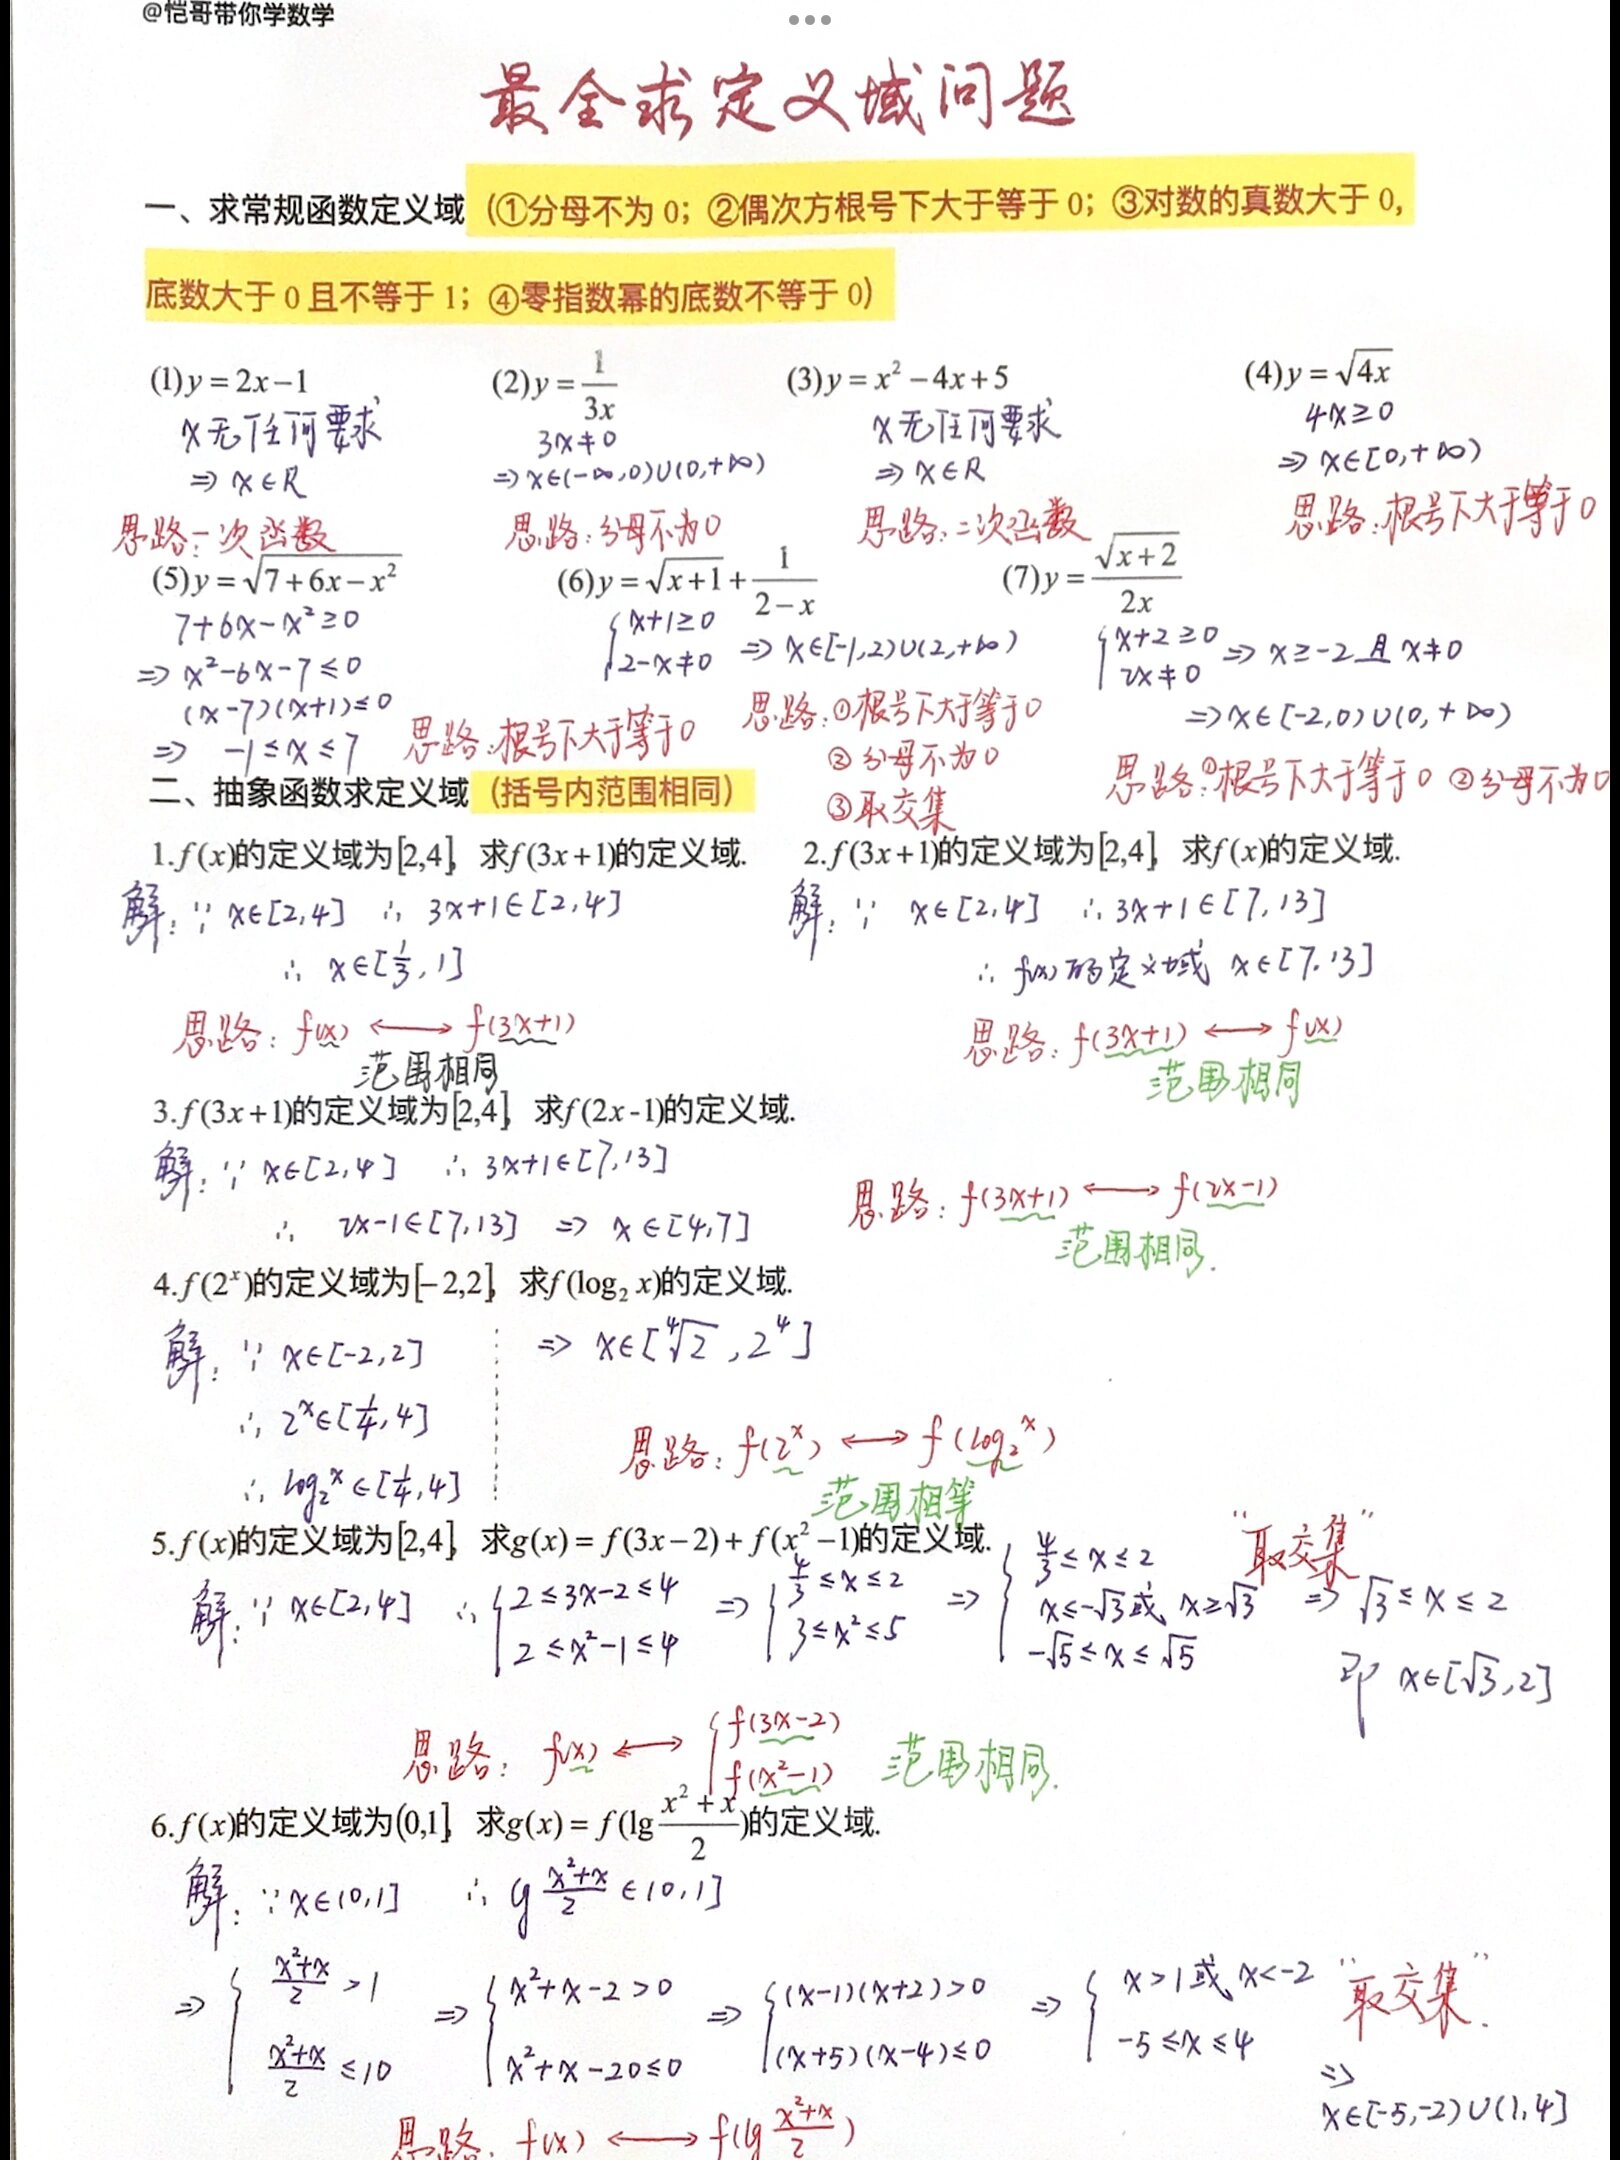 @恺哥带你学数学
最全求定义域问题
一、求常规函数定义域（①分母不为 0；②偶次方根号下大于等于 0；③对数的真数大于 0，
底数大于 0 且不等于 1；④零指数幂的底数不等于 0）
(1)y = 2x−1
x无任何要求
⇒ x∈R
思路:一次函数
(2)y = 1/3x
3x≠0
⇒x∈(−∞,0)∪(0,+∞)
思路:分母不为0
(3)y = x² −4x+5
x无任何要求
⇒ x∈R
思路:二次函数
(4)y = √4x
4x≥0
⇒ x∈[0,+∞)
思路:根号下大于等于0
(5)y = √7+6x−x²
7+6x−x²≥0
⇒ x²−6x−7≤0
(x−7)(x+1)≤0
⇒ −1≤x≤7
思路:根号下大于等于0
(6)y = √x+1 + 1/2−x
{x+1≥0
2−x≠0 ⇒ x∈[−1,2)∪(2,+∞)
思路:①根号下大于等于0
②分母不为0
③取交集
(7)y = √x+2/2x
{x+2≥0
2x≠0 ⇒ x≥−2且x≠0
⇒x∈[−2,0)∪(0,+∞)
思路:①根号下大于等于0 ②分母不为0
二、抽象函数求定义域（括号内范围相同）
1.f(x)的定义域为[2,4]，求f(3x+1)的定义域.
解:∵x∈[2,4] ∴ 3x+1∈[2,4]
∴ x∈[1/3,1]
思路: f(x) ⟷ f(3x+1)
范围相同
2.f(3x+1)的定义域为[2,4]，求f(x)的定义域.
解:∵ x∈[2,4] ∴3x+1∈[7,13]
∴ f(x)的定义域 x∈[7,13]
思路: f(3x+1) ⟷ f(x)
范围相同
3.f(3x+1)的定义域为[2,4]，求f(2x-1)的定义域.
解:∵ x∈[2,4] ∴ 3x+1∈[7,13]
∴ 2x−1∈[7,13] ⇒ x∈[4,7]
思路: f(3x+1) ⟷ f(2x−1)
范围相同.
4.f(2ˣ)的定义域为[−2,2]，求f(log₂ x)的定义域.
解:∵ x∈[−2,2]
∴ 2ˣ∈[1/4,4]
∴ log₂ˣ∈[1/4,4]
⇒ x∈[⁴√2,2⁴]
思路: f(2ˣ) ⟷ f(log₂ˣ)
范围相等
5.f(x)的定义域为[2,4]，求g(x) = f(3x−2)+f(x²−1)的定义域.
解:∵ x∈[2,4] ∴ {2≤3x−2≤4
2≤x²−1≤4
⇒ {4/3≤x≤2
3≤x²≤5
⇒ {4/3≤x≤2
x≤−√3或x≥√3
−√5≤x≤√5
"取交集"
⇒ √3≤x≤2
即 x∈[√3,2]
思路: f(x) ⟷ {f(3x−2)
f(x²−1)
范围相同.
6.f(x)的定义域为(0,1]，求g(x) = f(lg x²+x/2)的定义域.
解:∵x∈(0,1] ∴ lg x²+x/2 ∈(0,1]
⇒ {x²+x/2 >1
x²+x/2 ≤10
⇒ {x²+x−2>0
x²+x−20≤0
⇒ {(x−1)(x+2)>0
(x+5)(x−4)≤0
⇒ {x>1或x<−2
−5≤x≤4
"取交集".
⇒
x∈[−5,−2)∪(1,4]
思路: f(x) ⟷ f(lg x²+x/2)